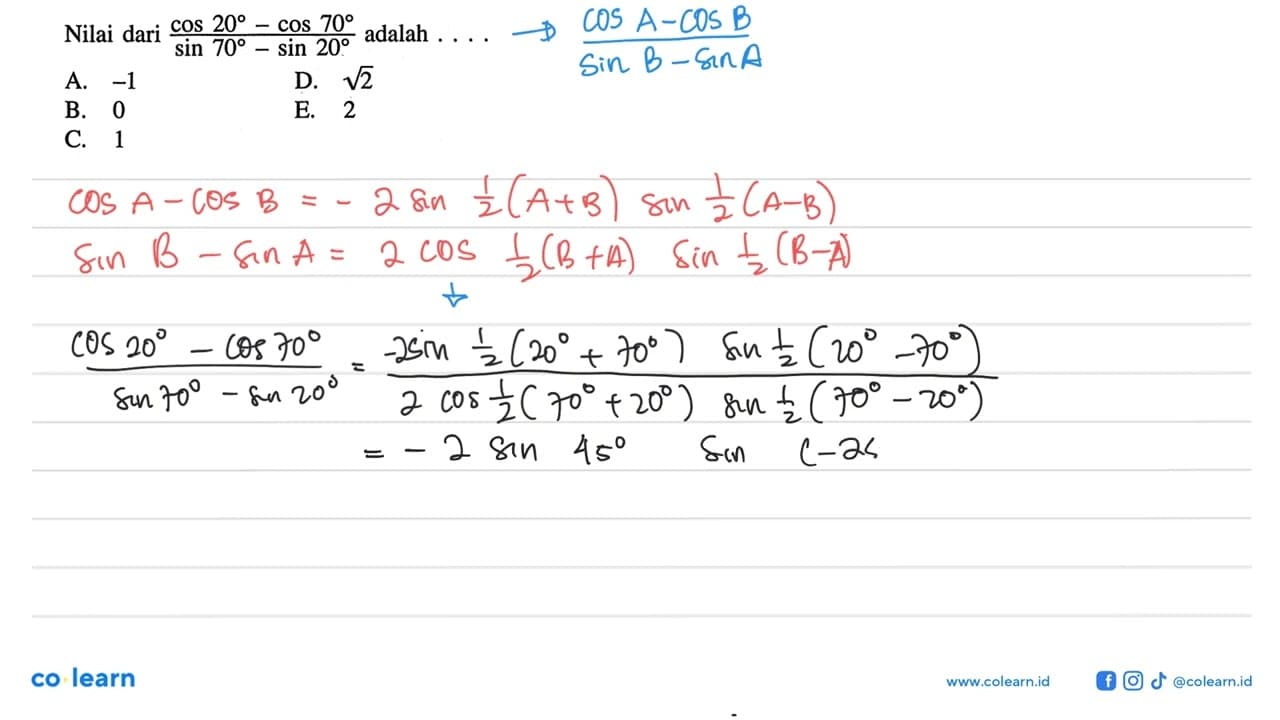 Nilai dari (cos 20° − cos 70°)/(sin 70° − sin 20°) adalah . . . . → (cos A − cos B)/(sin B − sin A)
A. −1 D. √2
B. 0 E. 2
C. 1
cos A − cos B = − 2 sin 1/2 (A+B) sin 1/2 (A−B)
sin B − sin A = 2 cos 1/2 (B+A) sin 1/2 (B−A)
(cos 20° − cos 70°)/(sin 70° − sin 20°) = (−2 sin 1/2 (20° + 70°) sin 1/2 (20° − 70°))/(2 cos 1/2 (70° + 20°) sin 1/2 (70° − 20°))
= − 2 sin 45° sin (−25
co learn www.colearn.id @colearn.id